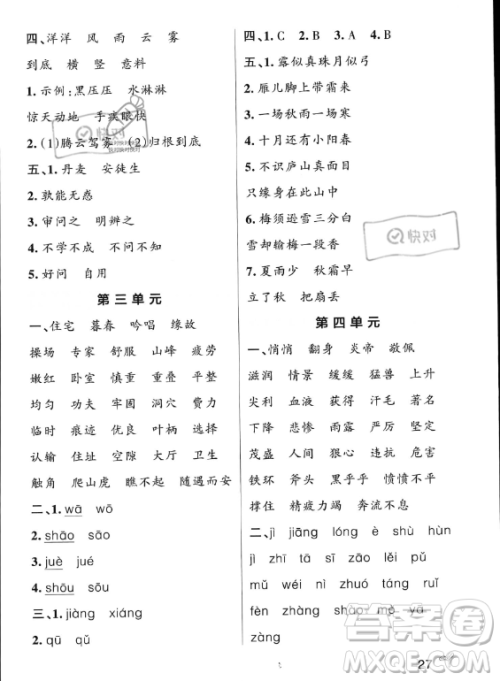 四、洋洋 风 雨 云 雾
到底 横 竖 意料
1. 示例:黑压压 水淋淋
惊天动地 手疾眼快
2. (1)腾云驾雾 (2)归根到底
五、1. 丹麦 安徒生
2. 孰能无惑
3. 审问之 明辨之
4. 不学不成 不问不知
5. 好问 自用
第三单元
一、住宅 暮春 吟唱 缘故
操场 专家 舒服 山峰 疲劳
嫩红 卧室 慎重 重叠 平整
均匀 功夫 牢固 洞穴 费力
临时 痕迹 优良 叶柄 随遇
认输 住址 空隙 大厅 卫生
触角 爬山虎 瞧不起 随遇而安
二、1. wā wō
2. shāo sāo
3. juè jué
4. shōu sōu
三、1. jiàng xiáng
2. qū qǔ
四、1. C 2. B 3. A 4. B
五、1. 露似真珠月似弓
2. 雁儿脚上带霜来
3. 一场秋雨一场寒
4. 十月还有小阳春
5. 不识庐山真面目
只缘身在此山中
6. 梅须逊雪三分白
雪却输梅一段香
7. 夏雨少 秋霜早
立了秋 把扇丢
第四单元
一、悄悄 翻身 炎帝 敬佩
滋润 情景 缓缓 猛兽 上升
尖利 血液 获得 汗毛 著名
下降 悲惨 雨露 严厉 坚决
茂盛 人类 狠心 违抗 危害
铁环 斧头 民愤愤不平
撑住 精疲力竭 奔流不息
二、jì jiāng lóng è shù hùn
jī zhī tā sī zāo lěi pǔ
mú wéi wéi nì zhuó táng ruǐ
fèn zhàng shān mò tū wàng
zàng
27
快对
快对
答案圈
MXQE.COM